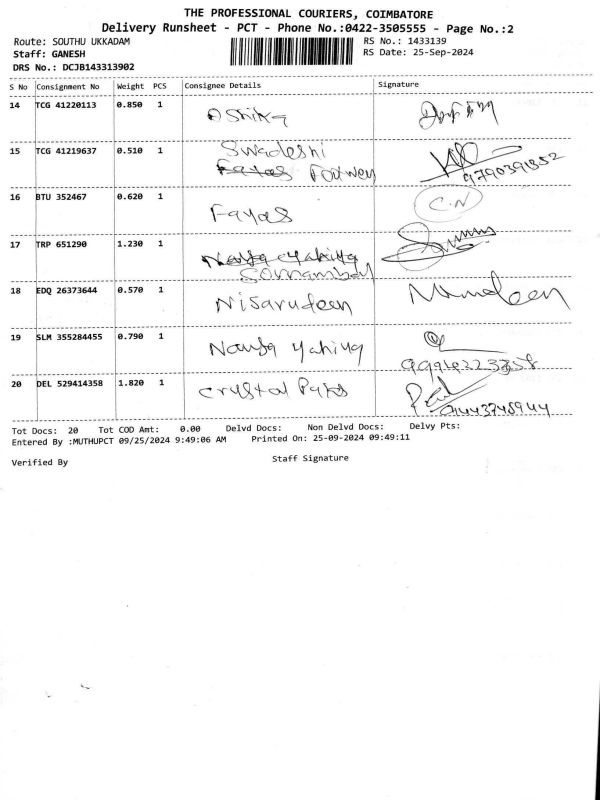 THE PROFESSIONAL COURIERS, COIMBATORE
Delivery Runsheet - PCT - Phone No.:0422-3505555 - Page No.:2
Route: SOUTHU UKKADAM
RS No.: 1433139
Staff: GANESH
RS Date: 25-Sep-2024
DRS No.: DCJB143313902
S No Consignment No Weight PCS Consignee Details Signature
14 TCG 41220113 0.850 1
Ashika
15 TCG 41219637 0.510 1
Swadeshi
Fayas Footwey
16 BTU 352467 0.620 1
Fayas
C.N
17 TRP 651290 1.230 1
18 EDQ 26373644 0.570 1
Nisarudeen
19 SLM 355284455 0.790 1
20 DEL 529414358 1.820 1
Crystal
Tot Docs: 20 Tot COD Amt: 0.00 Delvd Docs: Non Delvd Docs: Delvy Pts:
Entered By :MUTHUPCT 09/25/2024 9:49:06 AM Printed On: 25-09-2024 09:49:11
Verified By
Staff Signature